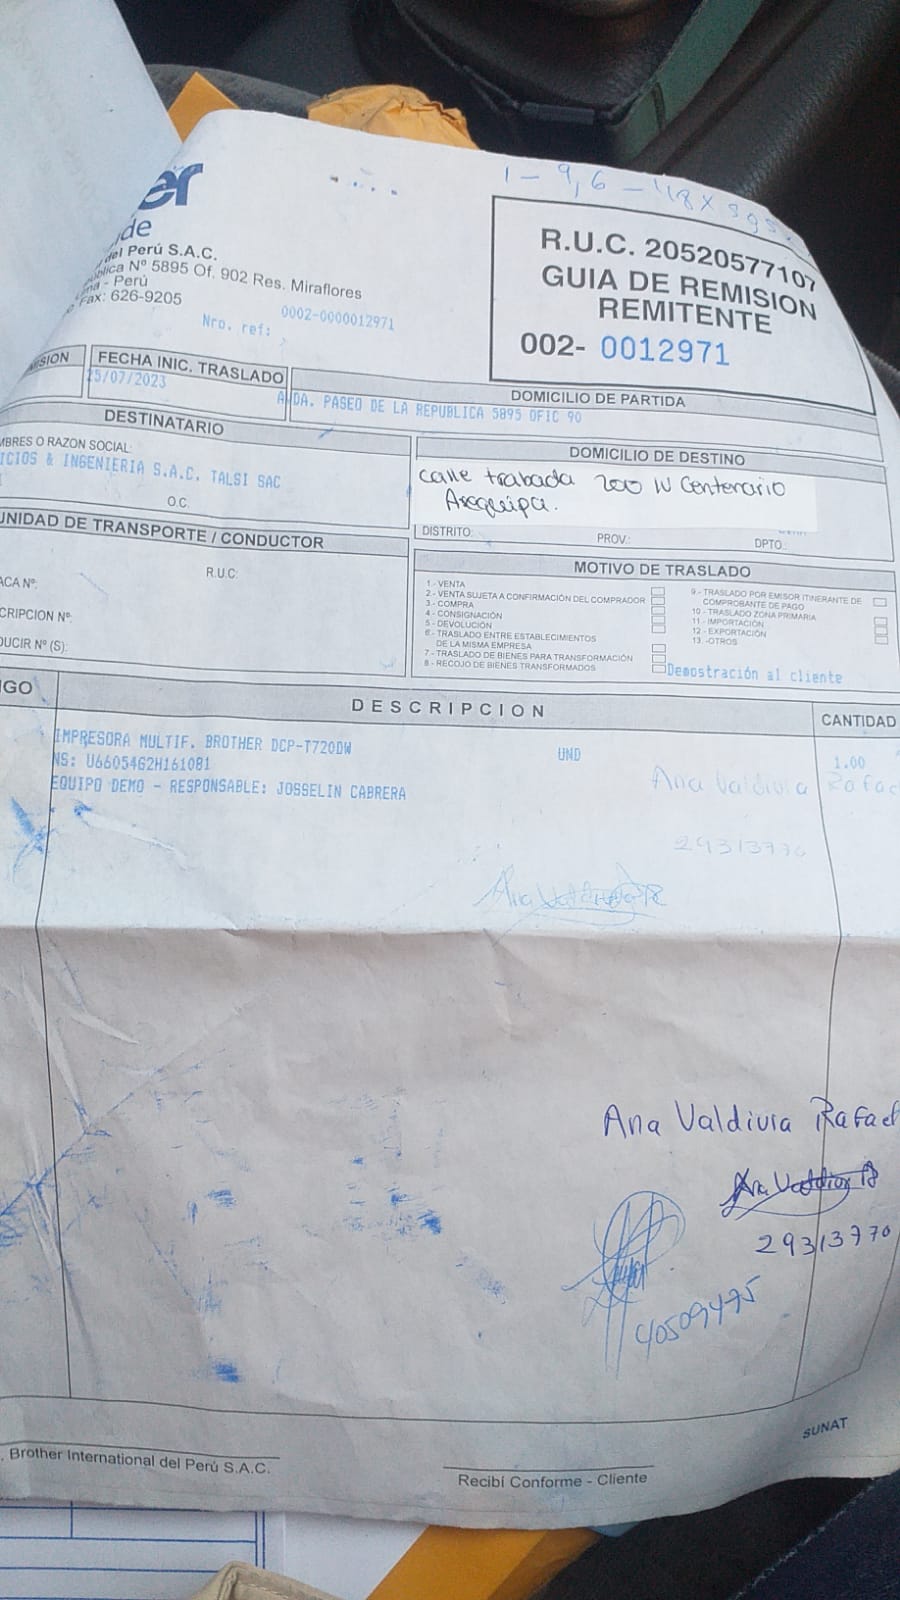 er
de
del Perú S.A.C.
ública Nº 5895 Of. 902 Res. Miraflores
ma - Perú
Fax: 626-9205
Nro. ref: 0002-0000012971
1 - 9,6 - 48 X
R.U.C. 20520577107
GUIA DE REMISION
REMITENTE
002- 0012971
MISION
FECHA INIC. TRASLADO
25/07/2023
DOMICILIO DE PARTIDA
AVDA. PASEO DE LA REPUBLICA 5895 OFIC 90
DESTINATARIO
MBRES O RAZON SOCIAL:
ICIOS & INGENIERIA S.A.C. TALSI SAC
O.C.
DOMICILIO DE DESTINO
calle trabada 200 IV Centenario
Arequipa.
DISTRITO: PROV.: DPTO.:
UNIDAD DE TRANSPORTE / CONDUCTOR
R.U.C:
ACA Nº:
CRIPCION Nº:
DUCIR Nº (S):
MOTIVO DE TRASLADO
1.- VENTA
2.- VENTA SUJETA A CONFIRMACIÓN DEL COMPRADOR
3.- COMPRA
4.- CONSIGNACIÓN
5.- DEVOLUCIÓN
6.- TRASLADO ENTRE ESTABLECIMIENTOS
DE LA MISMA EMPRESA
7.- TRASLADO DE BIENES PARA TRANSFORMACIÓN
8.- RECOJO DE BIENES TRANSFORMADOS
9.- TRASLADO POR EMISOR ITINERANTE DE
COMPROBANTE DE PAGO
10.- TRASLADO ZONA PRIMARIA
11.- IMPORTACIÓN
12.- EXPORTACIÓN
13.-OTROS
Demostración al cliente
IGO
DESCRIPCION
CANTIDAD
IMPRESORA MULTIF. BROTHER DCP-T720DW UND 1.00
NS: U66054G2H161081
EQUIPO DEMO - RESPONSABLE: JOSSELIN CABRERA
Ana Valdivia Rafae
29313770
Ana Valdivia R
Ana Valdivia Rafael
Ana Valdivia R
29313770
40509475
SUNAT
Brother International del Perú S.A.C.
Recibí Conforme - Cliente